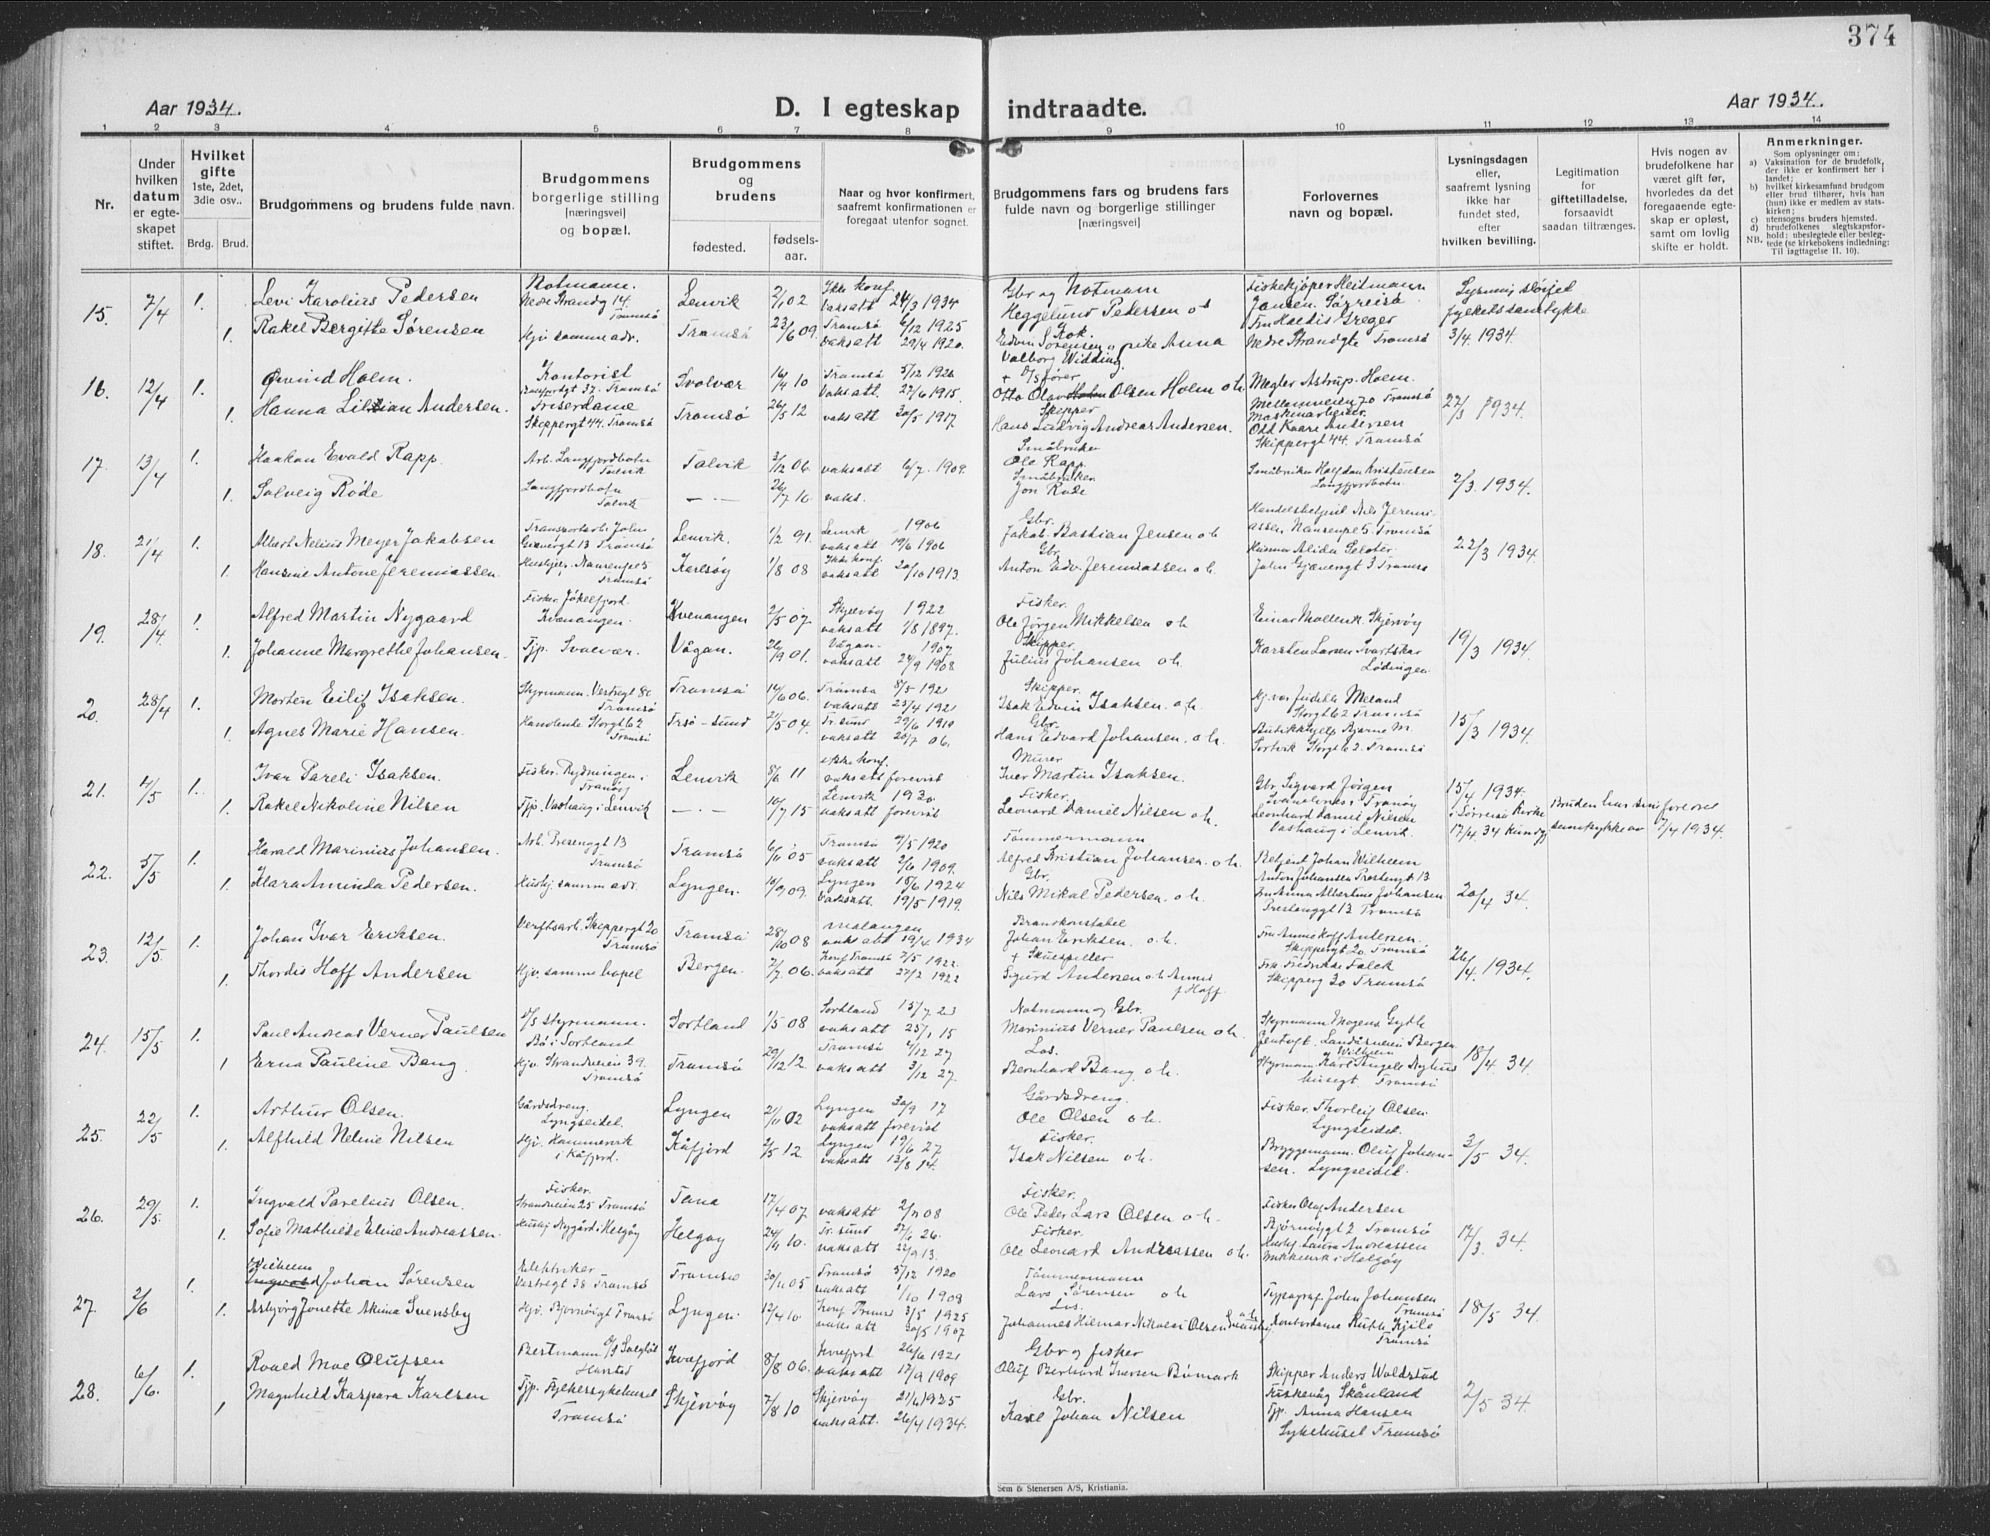 374
Aar 1934.
D. I egteskap indtraadte.
Aar 1934.
1 2 3 4 5 6 7 8 9 10 11 12 13 14
Nr.
Under hvilken datum er egteskapet stiftet.
Hvilket gifte 1ste, 2det, 3die osv..
Brdg. Brud.
Brudgommens og brudens fulde navn.
Brudgommens borgerlige stilling [næringsvei] og bopæl.
Brudgommens og brudens
fødested.
fødselsaar.
Naar og hvor konfirmert, saafremt konfirmationen er foregaat utenfor sognet.
Brudgommens fars og brudens fars fulde navn og borgerlige stillinger [næringsvei]
Forlovernes navn og bopæl.
Lysningsdagen eller, saafremt lysning ikke har fundet sted, efter hvilken bevilling.
Legitimation for giftetilladelse, forsaavidt saadan tiltrænges.
Hvis nogen av brudefolkene har været gift før, hvorledes da det foregaaende egteskap er opløst, samt om lovlig skifte er holdt.
Anmerkninger.
Som oplysninger om:
a) Vaksination for de brudefolk, der ikke er konfirmert her i landet;
b) hvilket kirkesamfund brudgom eller brud tilhører, hvis han (hun) ikke er medlem av statskirken;
c) utensogns bruders hjemsted.
d) brudefolkenes slegtskapsforhold; ubeslegtede eller beslegtede (se kirkebokens indledning: Til iagttagelse II. 10).
NB.
15. 7/4 1. Levi Karolius Pedersen Notmann. Nedre Strandg 14. Tromsø Lenvik 2/1 02 Ikke konf. vaksatt 24/3 1934 Gbr og Notmann Heggelund Pedersen o h Fiskekjøper Heitmann Jansen. Sørreisa Lysning sløifet fylkets samtykke
1. Rakel Bergitte Sørensen Hjv samme adr. Tromsø 23/6 09. Tromsø 6/12 1925 vaksatt 29/4 1920. Kok. Edvin Sørensen og pike Anna Valborg Widding Fru Haldis Greger Nedre Strandgte Tromsø 3/4. 1934.
16. 12/4 1. Øivind Holm. Kontorist Tromsø Svolvær 16/4 10 Tromsø 5/12 1926 Vaksatt. 27/6 1915. Otto Olav Olsen Holm o h. Megler Astrup Holm. Mellemveien 70 Tromsø 22/3 1934.
1. Hanna Lillian Andersen. Friserdame Skippergt 44. Tromsø Tromsø 26/5 12 vaksatt 30/5 1917. Skipper Hans Ludvig Andreas Andersen. Maskinarbeider Odd Kaare Andersen Skippergt 44. Tromsø
17. 13/4 1. Haakon Evald Rapp. Arb. Langfjordbotn Talvik Talvik 3/12 06. vaksatt 6/7. 1909. Småbruker Ole Rapp. Småbruker Halfdan Kristensen Langfjordbotn. 2/3. 1934.
1. Solveig Røde Langfjordbotn Talvik — " — 26/7 10. vaks. Småbruker Jon Røde
18. 21/4 1. Albert Nelius Meyer Jakobsen Transportarb. John Giævergt 13 Tromsø Lenvik. 1/2 91. Lenvik 1906 vaksatt 19/6 1906 Gbr. Jakob Bastian Jensen o h Handelsbetjent Nils Jeremiassen, Nansenpl 5. Tromsø 22/3 1934.
1. Hansine Antone Jeremiassen Hushjelp. Nansenpl 5 Tromsø Karlsøy 1/8 08 Ikke konf. vaksatt 20/10 1913. Gbr. Anton Edv. Jeremiassen o h. John Gjævergt 3 Tromsø
19. 28/4 1. Alfred Martin Nygaard Fisker. Jøkelfjord. Kvænangen. Kvenangen 2/5 07. Skjervøy 1922 vaksatt 1/8 1897. Fisker. Ole Jørgen Mikkelsen o h Einar Mollenk. Skjervøy 19/3 1934.
1. Johanne Margrethe Johansen. Tjp. Svolvær. Vågan. 26/9 01. Vågan. 1907 vaksatt 24/9 1908 Skipper. Julius Johansen o h. Karsten Larsen Svartskar Lødingen
20. 28/4 1. Morten Eilif Isaksen. Styrmann. Vestregt 80 Tromsø Tromsø 14/6 06. Tromsø 8/5 1921 vaksatt 23/4 1921 Skipper. Isak Edvin Isaksen. o h. Meland Storgt 62 Tromsø 15/3 1934.
1. Agnes Marie Hansen. Storgt 62 Tromsø Trsø-sund 2/5 04. Tr. sund 29/6 1919 vaksatt 20/7 06. Gbr. Hans Edvard Johansen. o h. Butikkhjelp Bjarne M. Sortvik Storgt 62. Tromsø
21. 4/5 1. Ivar Pareli Isaksen. Fisker. Rydningen i Tranøy Lenvik 8/6 11 ikke konf. vaksatt forevist Murer Iver Martin Isaksen. Gbr. Sigvard Jørgen i Tranøy 15/4 1934.
1. Rakel Nikoline Nilsen Tjp. Vashaug i Lenvik — " — 10/7 15 Lenvik 1930. vaksatt forevist Fisker. Leonard Daniel Nilsen o h. Leonhard Daniel Nilsen Vashaug i Lenvik. i Sørreisa kirke 17/4 34 Bruden har sine foreldres samtykke av 7/4 1934.
22. 5/5 1. Harald Marinius Johansen. Arb. Prestengt 13 Tromsø Tromsø 6/11 05 Tromsø 9/5 1920 vaksatt 2/6 1909. Tømmermann Alfred Kristian Johansen. o h. Betjent Johan Wilhelm Anton Johansen Prestengt 13. 20/4 34.
1. Klara Aminda Pedersen. Hushj. samm adr. Lyngen. 10/9 09. Lyngen 15/6 1924 vaksatt. 19/5 1919. Gbr. Nils Mikal Pedersen. o h. Fru Anna Albertine Johansen Prestenggt 13 Tromsø
23. 12/5 1. Johan Ivar Eriksen. Verftsarb. Skippergt 20 Tromsø Tromsø 28/10 08 Malangen vaksatt 19/4 1934 Brandkonstabel Johan Eriksen. o. h. Skippergt 20. Tromsø 26/4. 1934.
1. Thordis Hoff Andersen Hjv. samme bopel Bergen. 2/7 06. Konf Tromsø 7/5 1922. vaksatt 27/2 1922 + Skuespiller Sigurd Andersen o h Anna f. Hoff. Frk Fredrikke Falck Skipperg 20 Tromsø
24. 15/5 1. Paul Andreas Verner Paulsen Styrmann. Bø i Sortland Sortland 1/5 08 Sortland 15/7 23 vaksatt 25/1 15 Notmann og Gbr. Marinius Verner Paulsen o h. Styrmann Mogens Gyth Jentoft. Landåsveien Bergen 18/4. 34.
1 Erna Pauline Bang. Hjv. Strandveien 39. Tromsø Tromsø 29/12 12. Tromsø 4/12 27 vaksatt 3/12 27. Los. Bernhard Bang. o h. Styrmann Karl Wilhelm Tromsø
25. 22/5 1. Arthur Olsen. Gårdsdreng. Lyngseidet. Lyngen 21/11 02 Lyngen 30/9 17 vaksatt forevist Gårdsdreng. Ole Olsen o h. Fisker. Thorleif Olsen. Lyngseidet. 3/5 34.
1. Alfhild Neline Nilsen Hjv. Hammervik i Kåfjord. Kåfjord 2/5 12. Lyngen 19/6 27 vaksatt 13/8 14. Fisker. Isak Nilsen o h. Bryggemann. Oluf Johansen. Lyngseidet.
26. 29/5. 1. Ingvald Parelius Olsen. Fisker. Strandveien 25 Tromsø Tana 17/4 07. vaksatt 2/7 08 Fisker. Ole Peder Lars Olsen o h. Fisker Olaf Andersen Bjørnøygt 2 Tromsø 17/3. 34.
1. Sofie Mathilde Eline Andreassen. Hushj Nygård i Helgøy Helgøy 24/11 10. Tr. sund 27/6 26. vaksatt 22/9 13. Fisker. Ole Leonard Andreassen o h. Hushj. Laura Andreassen i Helgøy
27. 2/6 1. Vilhelm Johan Sørensen Elektriker Vestregt 38 Tromsø Tromsø 30/11 05 Tromsø 5/12 1920 vaksatt 1/10 1908 Tømmermann Lars Sørensen o h Typograf. John Johansen Tromsø 18/5 34.
1. Asbjørg Jonette Akina Svensby Hjv. Bjørnøigt Tromsø Lyngen. 12/4 10 Konf Tromsø 3/5 1925 vaksatt 20/5 1907 Los. Johannes Hilmar Nikolai Olsen Svensby o h. Kontordame Ruth Kjile Tromsø
28. 6/6. 1. Roald Moe Olufsen Bestmann Harstad Kvæfjord 8/8 06. Kvæfjord 26/6 1921 vaksatt 17/9 1909 Gbr og fisker Oluf Berhard Iversen Bømark Skipper Anders Woldstad Fiskevåg Skånland 2/5 34.
1 Magnhild Kaspara Karlsen Tjp. Fylkessykehuset Tromsø Skjervøy 7/8 10 Skjervøy 21/6 1925 vaksatt. 26/4 1934. Gbr. Karl Johan Nilsen Tjp. Anna Hansen Sykehuset Tromsø
Sem & Stenersen A/S, Kristiania.